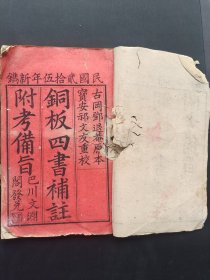 民國貳拾伍年新鐫
古岡鄧退菴原本
寶安祁文友重校
銅板四書補註
附考備旨
巴川文淵
閣發兌